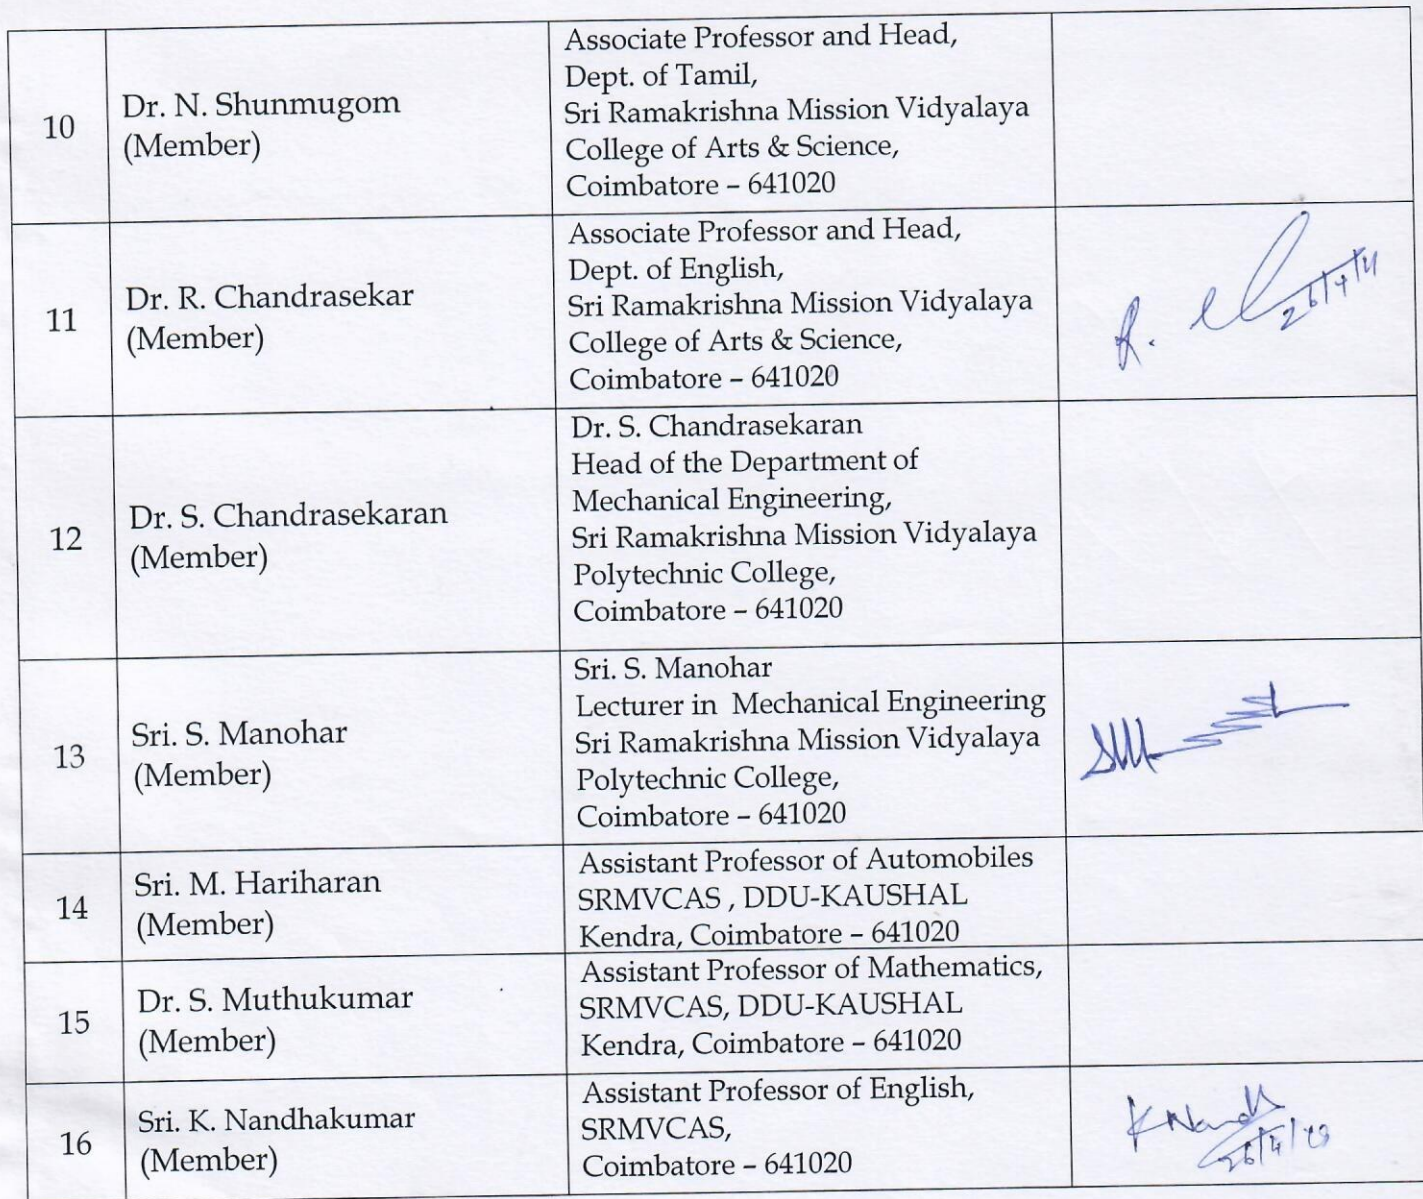 10
Dr. N. Shunmugom
(Member)
Associate Professor and Head,
Dept. of Tamil,
Sri Ramakrishna Mission Vidyalaya
College of Arts & Science,
Coimbatore – 641020
11
Dr. R. Chandrasekar
(Member)
Associate Professor and Head,
Dept. of English,
Sri Ramakrishna Mission Vidyalaya
College of Arts & Science,
Coimbatore – 641020
R.
12
Dr. S. Chandrasekaran
(Member)
Dr. S. Chandrasekaran
Head of the Department of
Mechanical Engineering,
Sri Ramakrishna Mission Vidyalaya
Polytechnic College,
Coimbatore – 641020
13
Sri. S. Manohar
(Member)
Sri. S. Manohar
Lecturer in Mechanical Engineering
Sri Ramakrishna Mission Vidyalaya
Polytechnic College,
Coimbatore – 641020
14
Sri. M. Hariharan
(Member)
Assistant Professor of Automobiles
SRMVCAS , DDU-KAUSHAL
Kendra, Coimbatore – 641020
15
Dr. S. Muthukumar
(Member)
Assistant Professor of Mathematics,
SRMVCAS, DDU-KAUSHAL
Kendra, Coimbatore – 641020
16
Sri. K. Nandhakumar
(Member)
Assistant Professor of English,
SRMVCAS,
Coimbatore – 641020
K Nandh